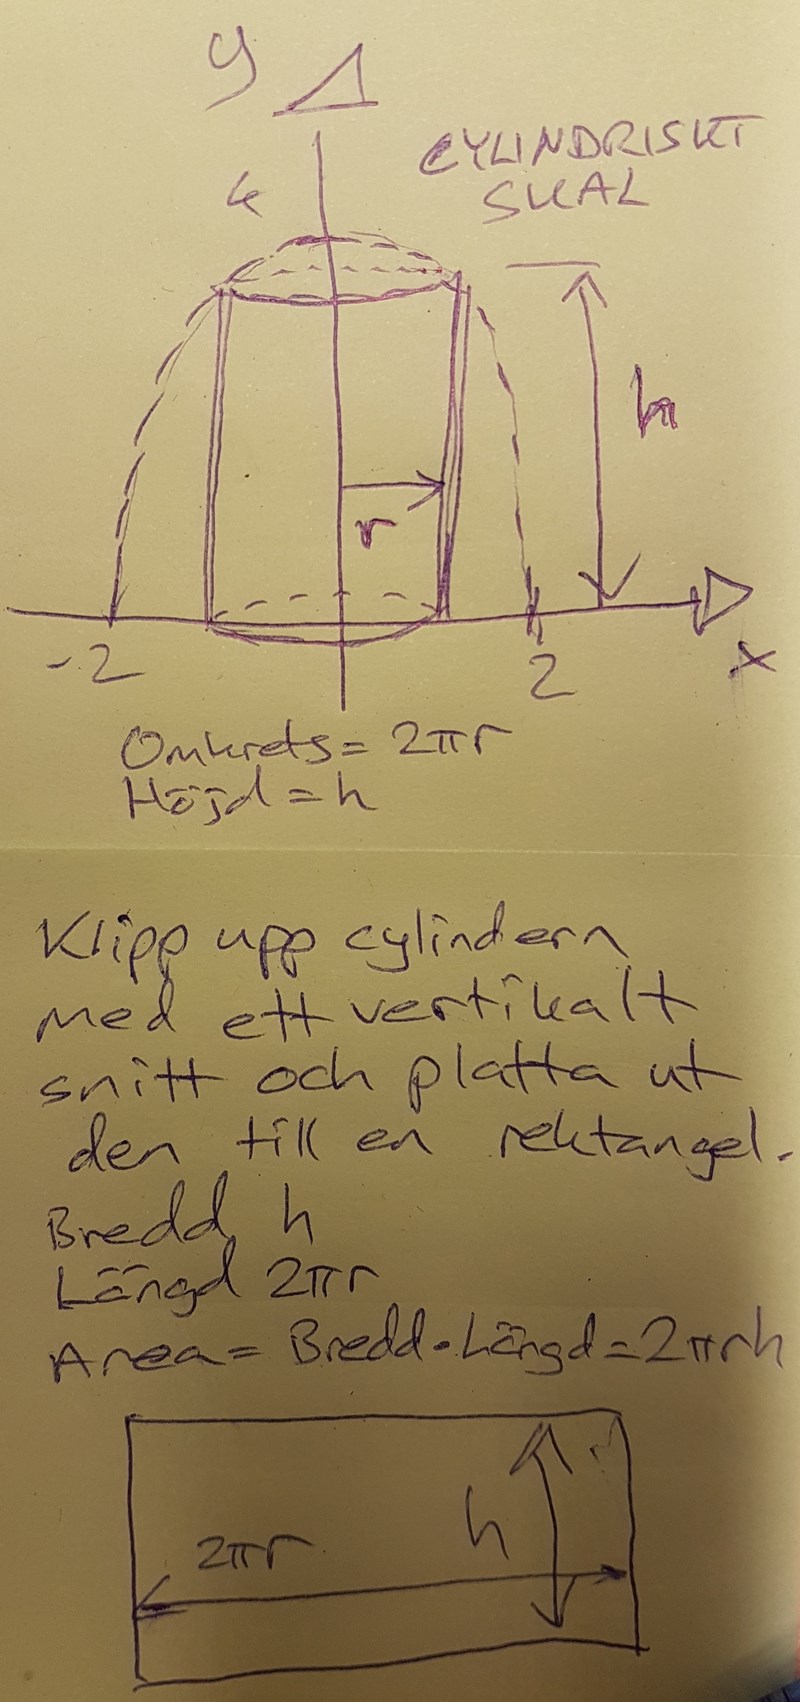 y
CYLINDRISKT
SKAL
4
h
r
-2
2
x
Omkrets = 2πr
Höjd = h
Klipp upp cylindern
med ett vertikalt
snitt och platta ut
den till en rektangel.
Bredd h
Längd 2πr
Area = Bredd·Längd = 2πrh
h
2πr